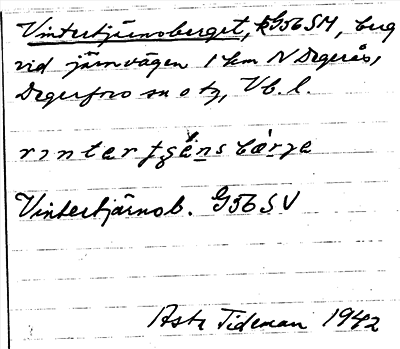 Vintertjärnsberget, kG56SM, berg
vid järnvägen 1 km N Degerås,
Degerfors sn o tg, Vb. l.
Vintertjärnsb. G56SV
Astr Tideman 1942